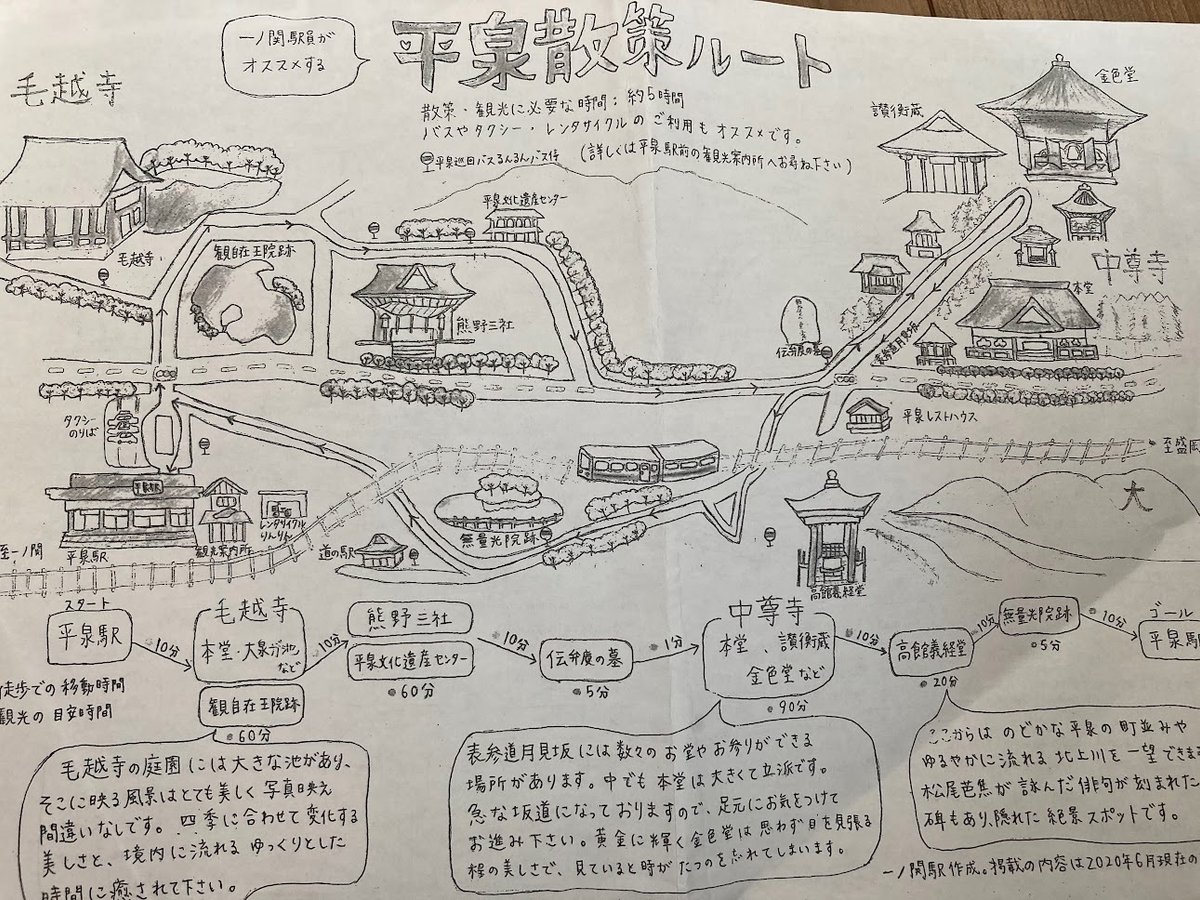 一ノ関駅員が
オススメする
平泉散策ルート
散策・観光に必要な時間：約5時間
バスやタクシー・レンタサイクルのご利用もオススメです。
平泉巡回バスるんるんバス停 (詳しくは平泉駅前の観光案内所へお尋ね下さい)
毛越寺
金色堂
讃衡蔵
平泉文化遺産センター
毛越寺
観自在王院跡
熊野三社
中尊寺
本堂
伝弁慶の墓
表参道月見坂
タクシー
のりば
平泉レストハウス
至盛岡
大
平泉駅
至一ノ関
平泉駅
観光案内所
レンタサイクル
りんりん
道の駅
無量光院跡
高館義経堂
スタート
平泉駅
10分
毛越寺
本堂、大泉が池
など
観自在王院跡
60分
10分
熊野三社
平泉文化遺産センター
60分
10分
伝弁慶の墓
5分
1分
中尊寺
本堂、讃衡蔵
金色堂など
90分
10分
高館義経堂
20分
10分
無量光院跡
5分
10分
ゴール
平泉駅
徒歩での移動時間
観光の目安時間
毛越寺の庭園には大きな池があり、
そこに映る風景はとても美しく写真映え
間違いなしです。四季に合わせて変化する
美しさと、境内に流れるゆっくりとした
時間に癒されて下さい。
表参道月見坂には数々のお堂やお参りができる
場所があります。中でも本堂は大きくて立派です。
急な坂道になっておりますので、足元にお気をつけて
お進み下さい。黄金に輝く金色堂は思わず目を見張る
程の美しさで、見ていると時がたつのを忘れてしまいます。
ここからはのどかな平泉の町並みや
ゆるやかに流れる北上川を一望できます
松尾芭蕉が詠んだ俳句が刻まれた
碑もあり、隠れた絶景スポットです。
一ノ関駅作成。掲載の内容は2020年6月現在の